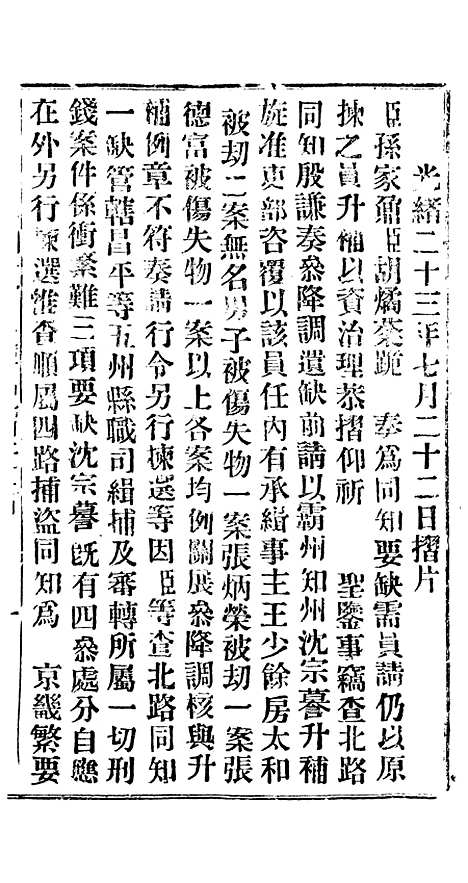 光緒二十三年七月二十二日摺片
臣孫家鼐臣胡燏棻跪　奏為同知要缺需員請仍以原
揀之員升補以資治理恭摺仰祈　聖鑒事竊查北路
同知殷謙奏叅降調遺缺前請以霸州知州沈宗謩升補
旋准吏部咨覆以該員任內有承緝事主王少餘房太和
被刼二案無名男子被傷失物一案張炳榮被刼一案張
德富被傷失物一案以上各案均例關展叅降調核與升
補例章不符奏請行令另行揀選等因臣等查北路同知
一缺管轄昌平等五州縣職司緝捕及審轉所屬一切刑
錢案件係衝繁難三項要缺沈宗謩既有四叅處分自應
在外另行揀選惟查順屬四路捕盜同知為　京畿繁要